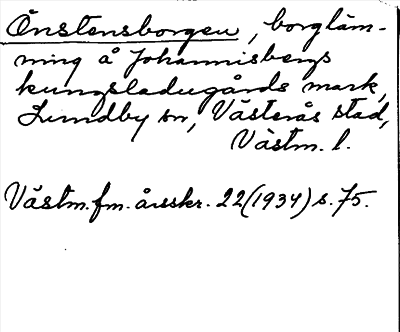 Önstensborgen, borgläm-
ning å Johannisbergs
kungsladugårds mark,
Lundby sn, Västerås stad,
Västm. l.
Västm. fm. årsskr. 22 (1934) s. 75.